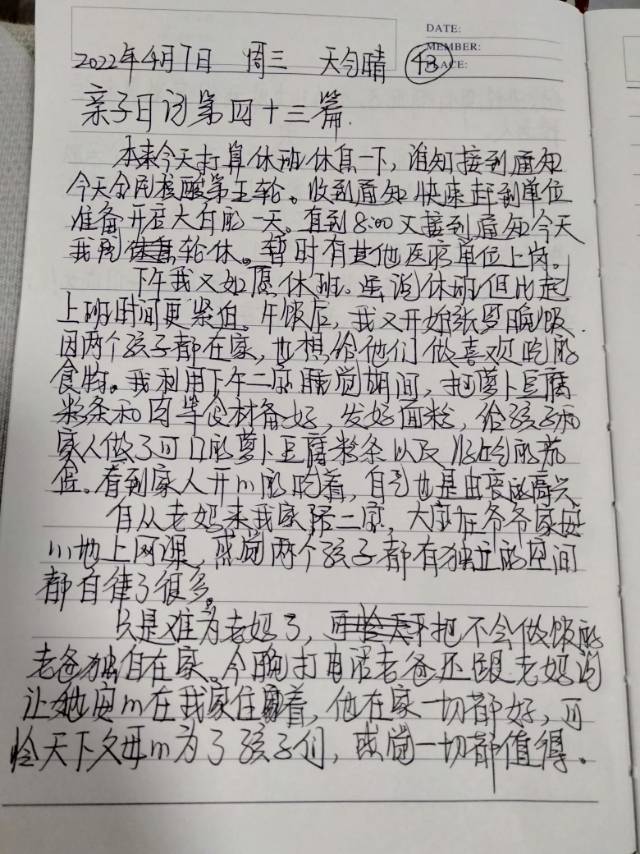 DATE:
MEMBER:
PLACE:
2022年4月7日 周三 天气晴 43
亲子日记第四十三篇.
本来今天打算休班休息一下,谁知接到通知
今天全民核酸第五轮。收到通知快速赶到单位
准备开在大自的一天。直到8:00又接到通知今天
我院轮休。暂时有其他医疗单位上岗。
下午我又如愿休班。虽说休班但比起
上班时间更紧迫。午饭后,我又开始张罗晚饭.
因两个孩子都在家,也想给他们做喜欢吃的
食物。我利用下午二康睡觉期间,把萝卜豆腐
粉条和肉等食材备好,发好面粉,给孩子和
家人做了可口的萝卜豆腐粉条以及的菜
包。看到家人开心的吃着,自己也是由衷的高兴
自从老妈来我家陪二康,大康在爷爷家安
心地上网课,感觉两个孩子都有独立的空间
都自律了很多。
只是难为老妈了,把不会做饭的
老爸独自在家。今晚打电话老爸还跟老妈说
让她安心在我家住着,他在家一切都好,可
怜天下父母心为了孩子们,感觉一切都值得。